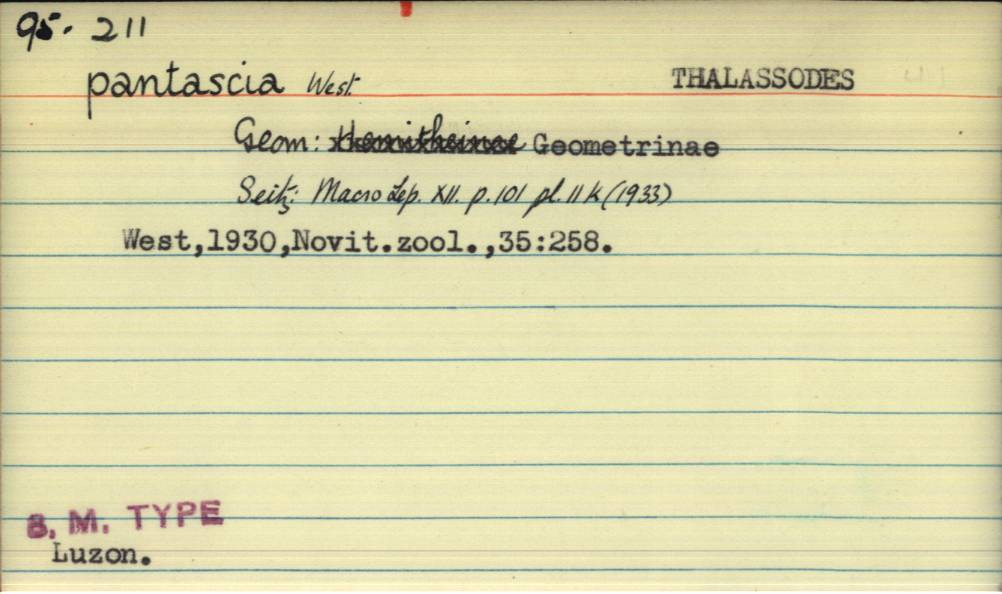 95. 211
pantascia West. THALASSODES
Geom: Hemitheinae Geometrinae
Seitz: Macro Lep. XII. p.101 pl.11 k (1933)
West,1930,Novit.zool.,35:258.
B. M. TYPE
Luzon.